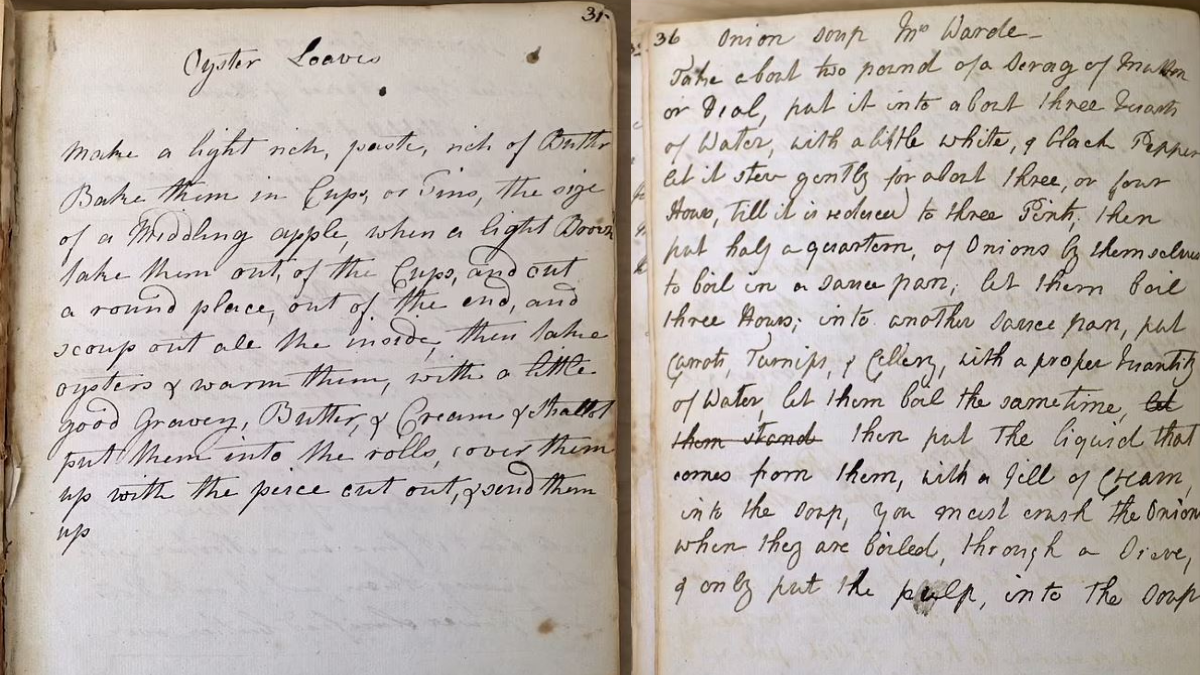 31
Oyster Loaves
Make a light rich, paste, rich of Butter
Bake them in Cups, or Tins, the size
of a Middling apple, when a light Brown
take them out, of the Cups, and cut
a round place, out of the end, and
scoup out all the inside, then take
oysters & warm them, with a little
good Gravey, Butter, & Cream & shallot
put them into the rolls, cover them
up with the peice cut out, & send them
up
36 Onion Soup Mrs Warde
Take about two pound of a Scrag of Mutton
or Veal, put it into about three Quarts
of Water, with a little white, & black Pepper
let it stew gently for about three, or four
Hours, till it is reduced to three Pints, then
put half a quartern, of Onions by themselves
to boil in a sauce pan, let them boil
three Hours; into another sauce pan, put
Carrots, Turnips, & Cellery, with a proper Quantity
of Water, let them boil the same time, let
them stand then put the liquid that
comes from them, with a Jill of Cream,
into the soup, you must crush the Onions
when they are boiled, through a Sieve,
& only put the pulp, into the soup